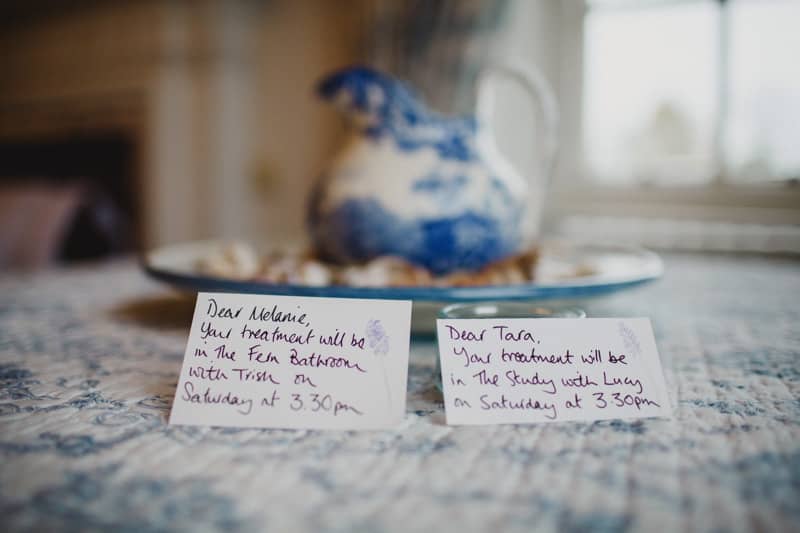 Dear Melanie,
Your treatment will be
in The Fern Bathroom
with Trish on
Saturday at 3.30pm
Dear Tara,
Your treatment will be
in The Study with Lucy
on Saturday at 3.30pm